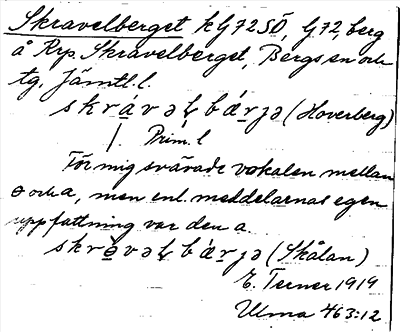 Skravelberget kG72SÖ, G72, berg
å Rrp. Skravelberget, Bergs sn och
tg. Jämtl. l.
skrávəḷ bárjə (Hoverberg)
Prim. l
För mig svävade vokalen mellan
ɵ och a, men enl. meddelarnas egen
uppfattning var den a.
skrávəḷ bárjə (Skålan)
E. Terner 1919
Ulma 463:12